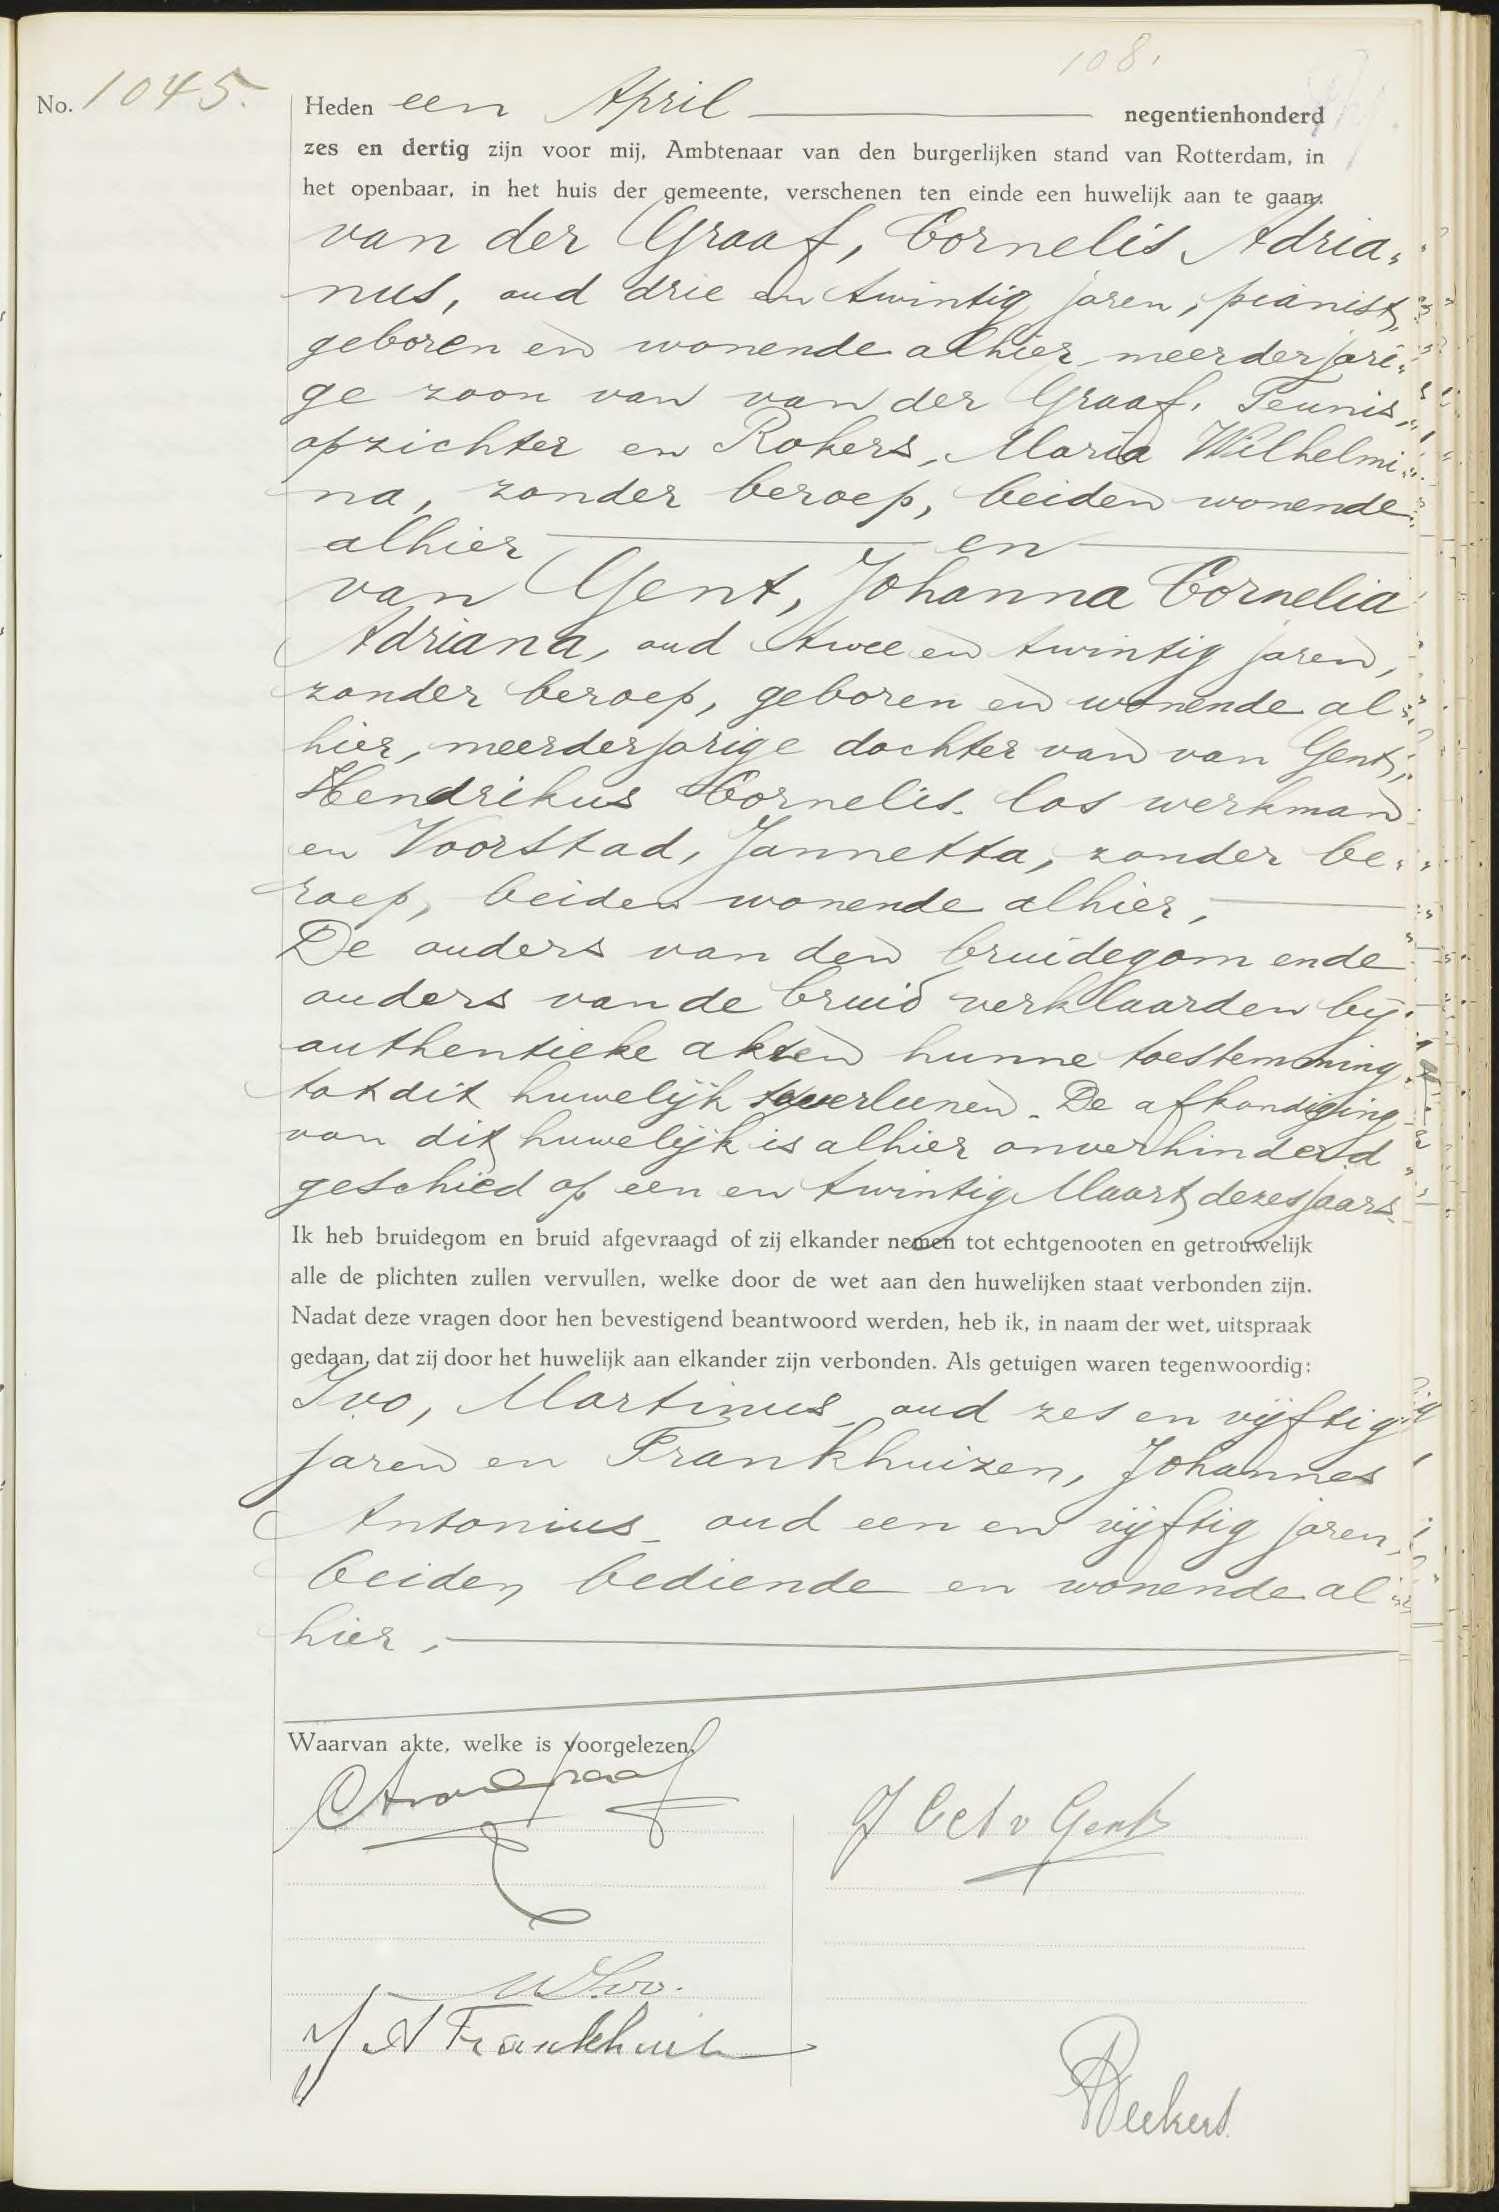 108.
No. 1045.
Heden een April negentienhonderd
zes en dertig zijn voor mij, Ambtenaar van den burgerlijken stand van Rotterdam, in
het openbaar, in het huis der gemeente, verschenen ten einde een huwelijk aan te gaan:
van der Graaf, Cornelis Adria„
nus, oud drie en twintig jaren, pianist,
geboren en wonende alhier, meerderjari„
ge zoon van van der Graaf, Teunis,
opzichter en Rokers, Maria Wilhelmi„
na, zonder beroep, beiden wonende
alhier en
van Gent, Johanna Cornelia
Adriana, oud twee en twintig jaren,
zonder beroep, geboren en wonende al„
hier, meerderjarige dochter van van Gent,
Hendrikus Cornelis, los werkman
en Voorstad, Jannetta, zonder be„
roep, beiden wonende alhier,
De ouders van den bruidegom en de
ouders van de bruid verklaarden bij
authentieke akten hunne toestemming
tot dit huwelijk te verleenen. De afkondiging
van dit huwelijk is alhier onverhinderd
geschied op een en twintig Maart dezes jaars.
Ik heb bruidegom en bruid afgevraagd of zij elkander nemen tot echtgenooten en getrouwelijk
alle de plichten zullen vervullen, welke door de wet aan den huwelijken staat verbonden zijn.
Nadat deze vragen door hen bevestigend beantwoord werden, heb ik, in naam der wet, uitspraak
gedaan, dat zij door het huwelijk aan elkander zijn verbonden. Als getuigen waren tegenwoordig:
Ivo, Martinus, oud zes en vijftig
jaren en Frankhuizen, Johannes
Antonius, oud een en vijftig jaren,
beiden bediende en wonende al„
hier,
Waarvan akte, welke is voorgelezen.
CAvandGraaf
J C A v Gent
M Ivo.
J A Frankhuizen